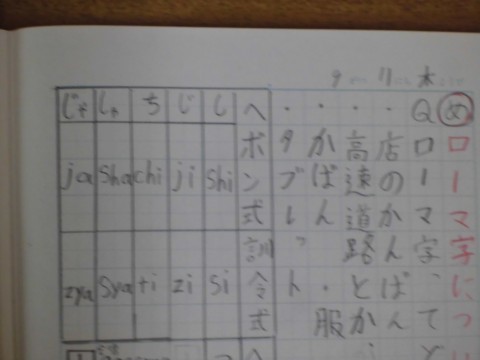 9 11 木
め ローマ字につ
Q ローマ字、て
・店のかんばん
・高速道路とか
・かばん・服
・タブレット
ヘボン式 訓令式
し shi si
じ ji zi
ち chi ti
しゃ sha sya
じゃ ja zya